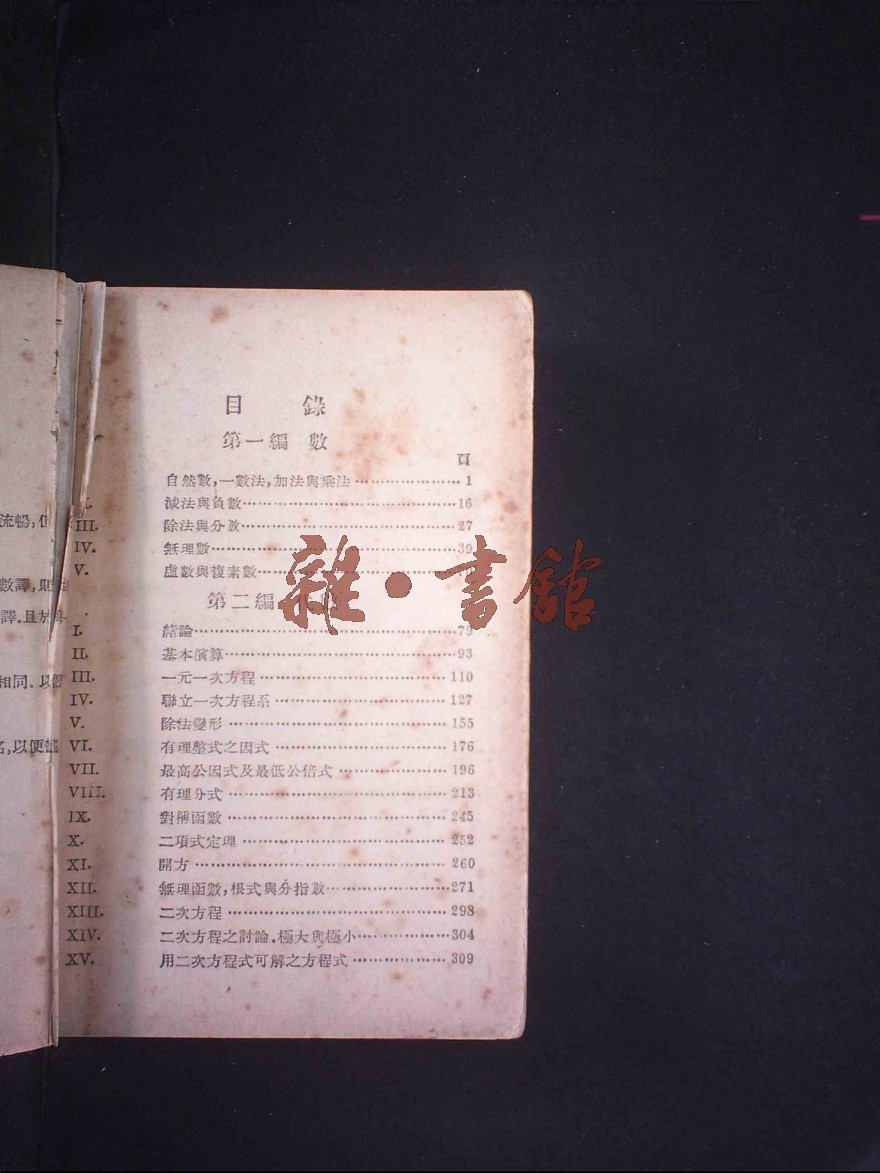 目 錄
第一編 數
頁
自然數,一數法,加法與乘法 1
減法與負數 16
III. 除法與分數 27
IV. 無理數 39
V. 虛數與複素數
第二編
雜·書館
I. 緒論 79
II. 基本演算 93
III. 一元一次方程 110
IV. 聯立一次方程系 127
V. 除法變形 155
VI. 有理整式之因式 176
VII. 最高公因式及最低公倍式 196
VIII. 有理分式 213
IX. 對稱函數 245
X. 二項式定理 252
XI. 開方 260
XII. 無理函數,根式與分指數 271
XIII. 二次方程 298
XIV. 二次方程之討論.極大與極小 304
XV. 用二次方程式可解之方程式 309
流暢,
數譯,
譯.且於
相同.以
名,以便